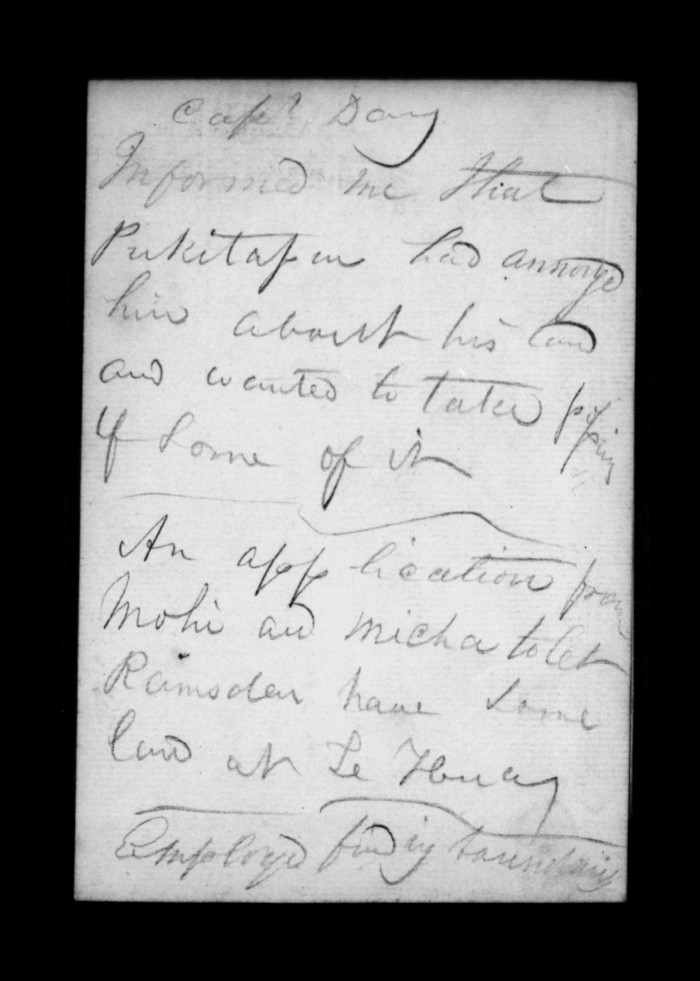 Capt. Day
Informed me that
Puketapu had annoyed
him about his land
and wanted to take
of some of it
An application from
Mohi and Micha to let
Ramsden have some
land at Te
Employed finding boundary